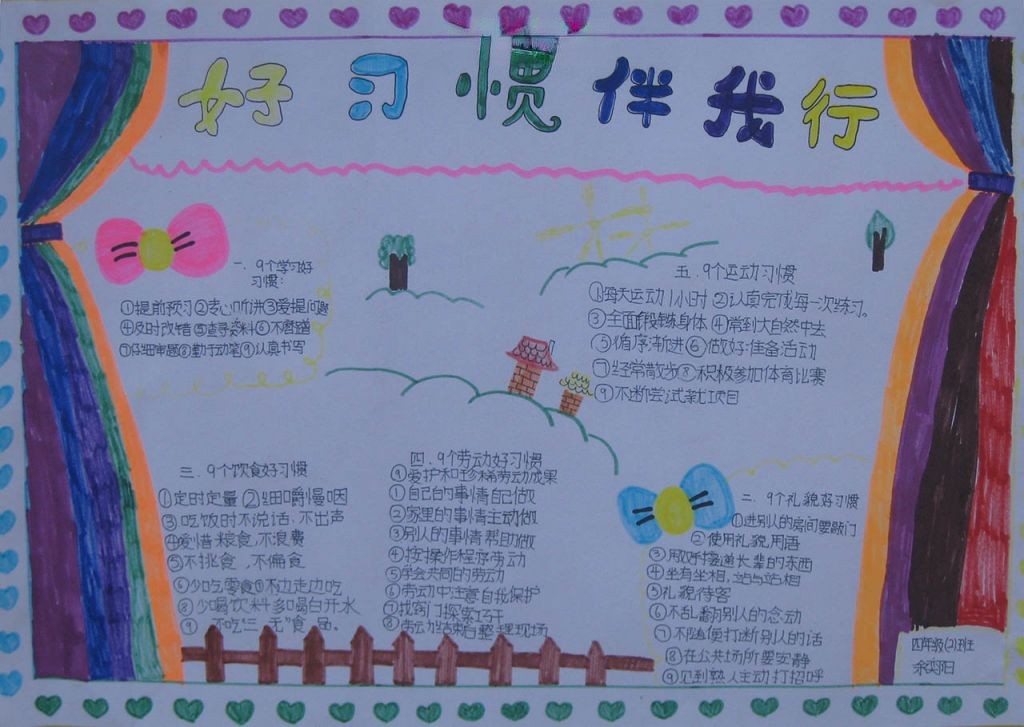 好习惯伴我行
一、9个学习好
习惯:
①提前预习②专心听讲③爱提问题
④及时改错⑤查寻资料⑥不磨蹭
⑦仔细审题⑧勤于动笔⑨认真书写
五、9个运动习惯
①每天运动1小时 ②认真完成每一次练习。
③全面假锻练身体 ④常到大自然中去
⑤循序渐进⑥做好准备活动
⑦经常散步⑧积极参加体育比赛
⑨不断尝试新项目
三、9个饮食好习惯
①定时定量 ②细嚼慢咽
③吃饭时不说话、不出声
④爱惜粮食,不浪费
⑤不挑食,不偏食
⑥少吃零食⑦不边走边吃
⑧少喝饮料多喝白开水
⑨不吃“三无”食品。
四、9个劳动好习惯
⑨爱护和珍稀劳动成果
①自己的事情自己做
②家里的事情主动做
③别人的事情帮助做
④按操作程序劳动
⑤学会共同的劳动
⑥劳动中注意自我保护
⑦找窍门探索巧干
⑧劳动结束后整理现场
二、9个礼貌好习惯
①进别人的房间要敲门
②使用礼貌用语
③用双手接递长辈的东西
④坐有坐相,站与站相
⑤礼貌待客
⑥不乱翻别人的
⑦不随便打断别人的话
⑧在公共场所要安静
⑨见到熟人主动打招呼
四年级(2)班